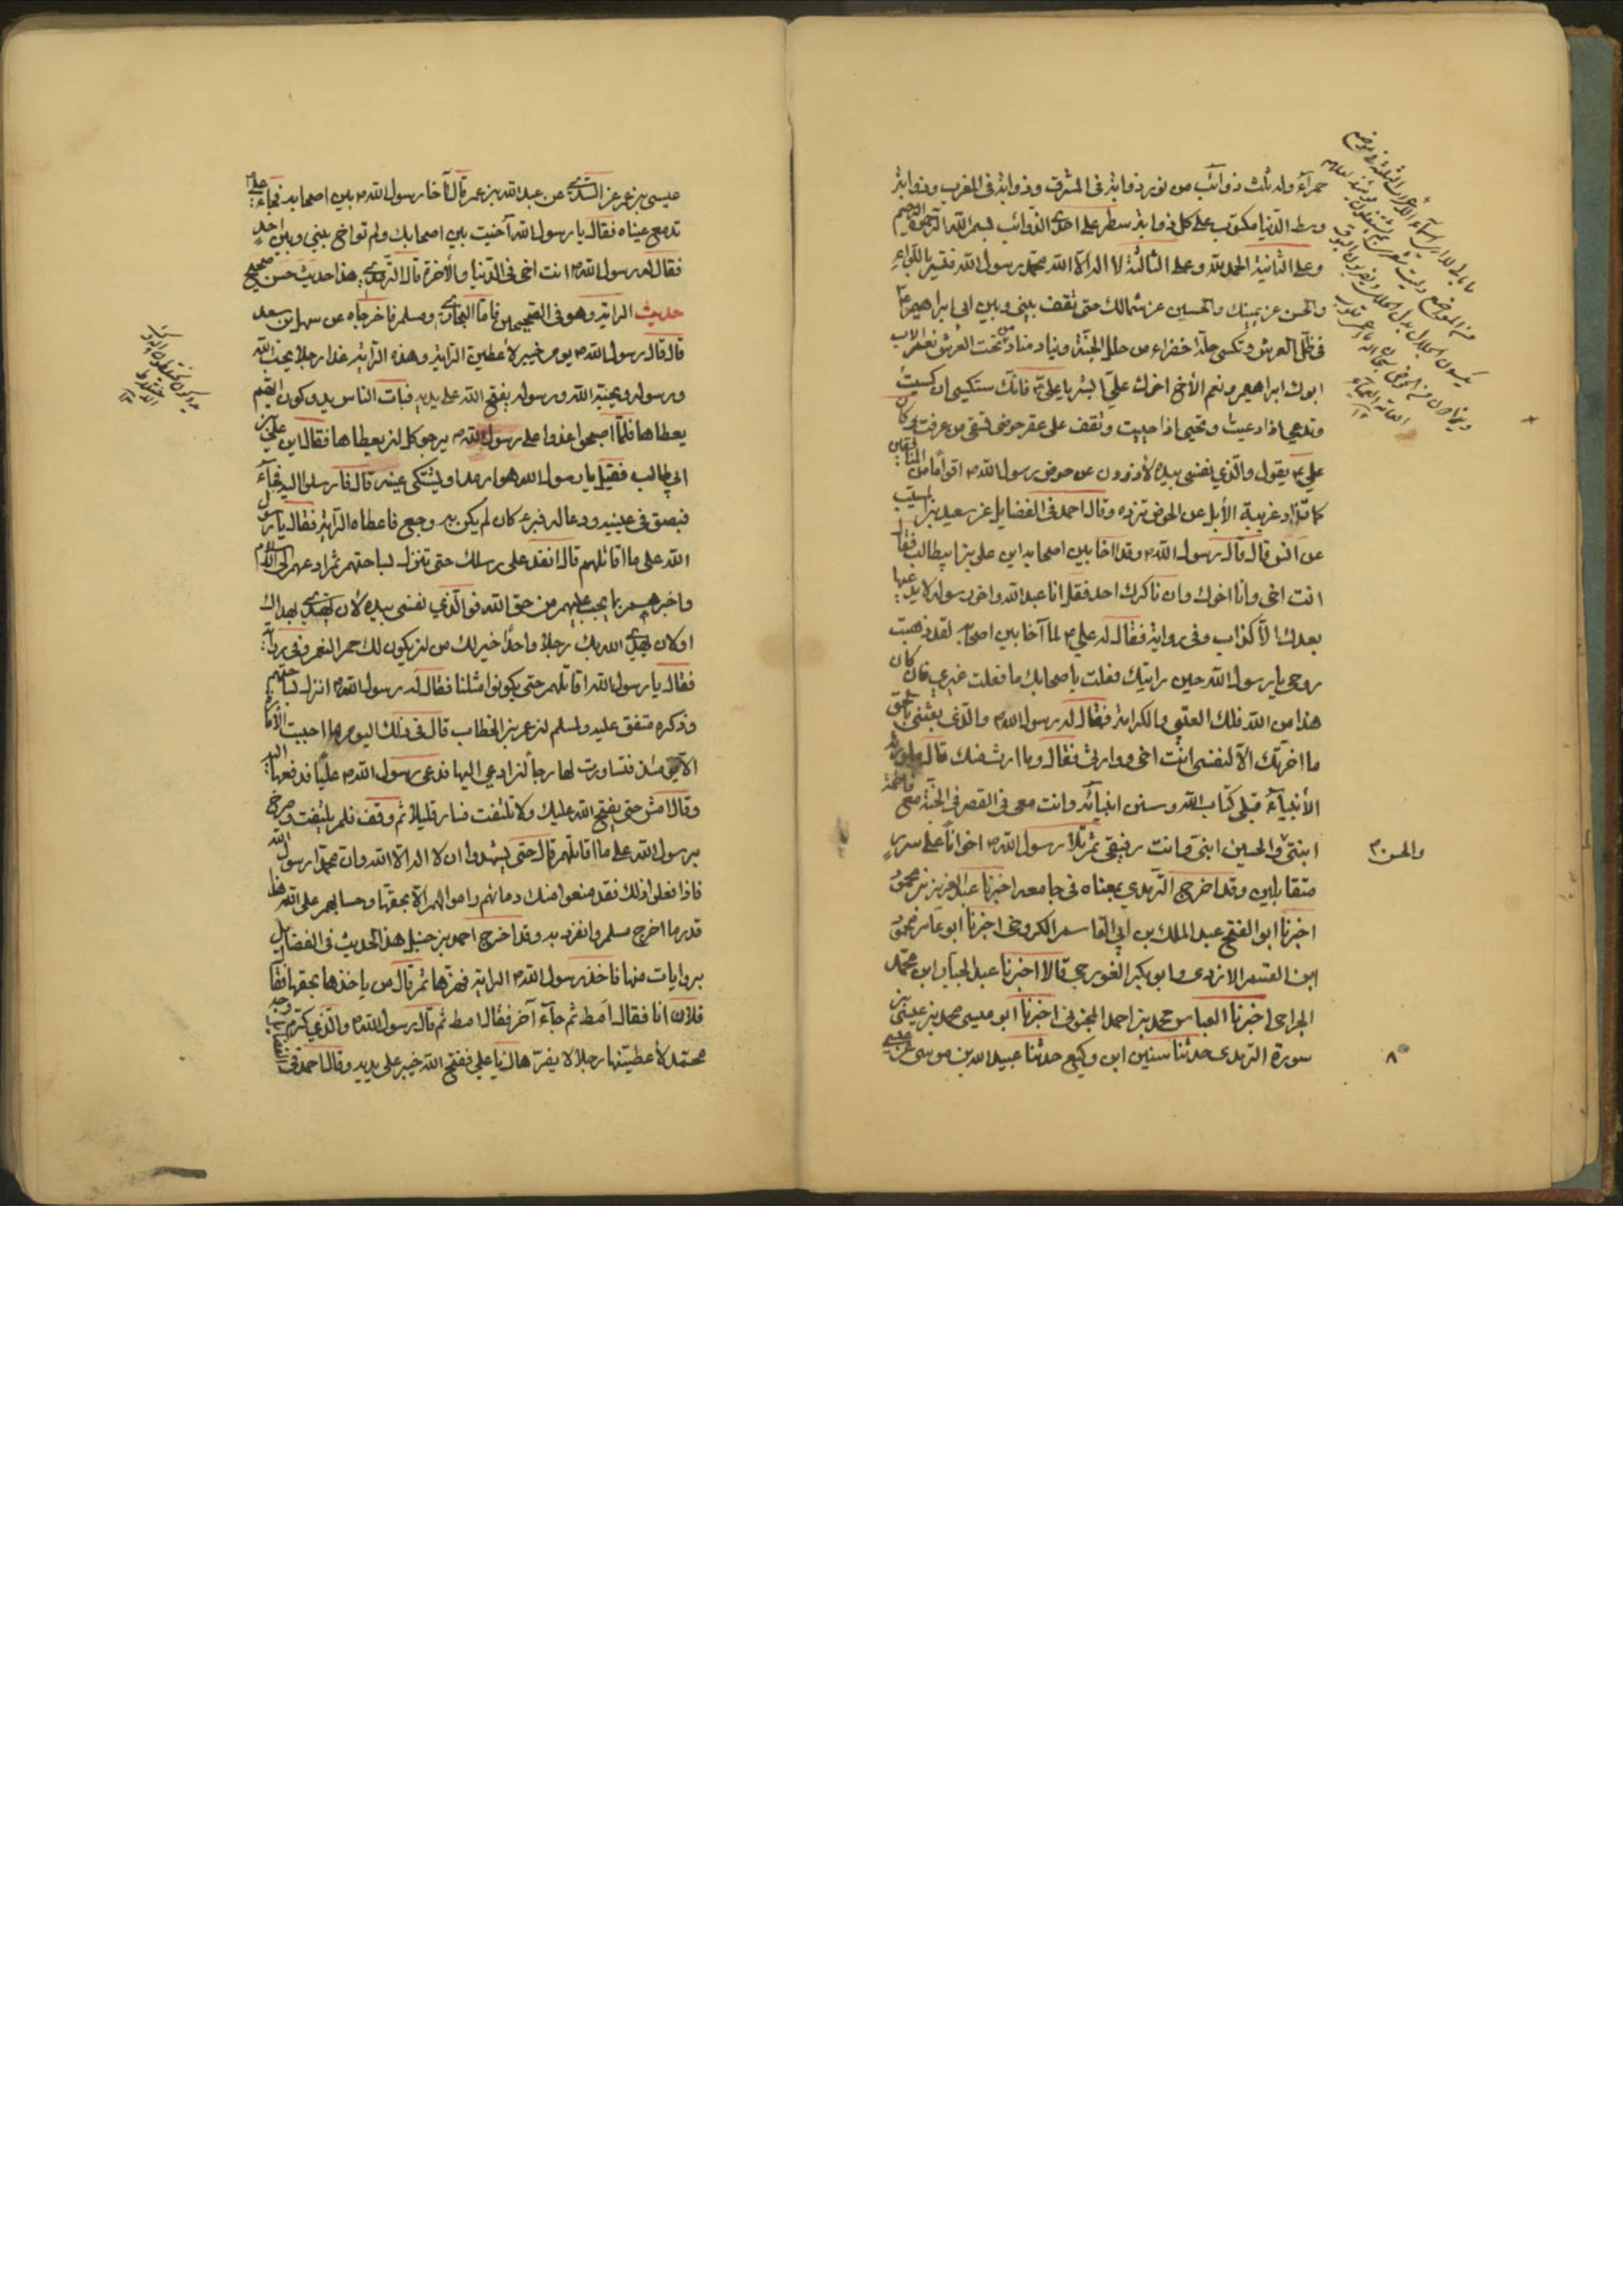 حمرآء وله ثلث ذوائب من نور ذوابة فى المشرق وذوابة فى المغرب وذوابة
وسط الدنيا مكتوب على كل ذوابة سطر على احدى الذوائب بسم الله الرحمن الرحيم
وعلى الثانية الحمد لله وعلى الثالثة لا اله الا الله محمد رسول الله فتسير باللوآء
والحسن عن يمينك والحسين عن شمالك حتى تقف بينى وبين ابى ابراهيم
فى ظل العرش وتكسى حلة خضراء من حلل الجنة وينادى مناد من تحت العرش نعم الاب
ابوك ابراهيم ونعم الأخ اخوك على ابشر يا على فانك ستكسى اذا كسيت
وتدعى اذا دعيت وتحيى اذا حييت وتقف على عقر حوضى تسقى من عرفت وكان
على يقول والذي نفسى بيده لأذودن عن حوض رسول الله اقواما من المنافقين
كما تذاد غريبة الأبل عن الحوض ترده وقال احمد فى الفضايل عن سعيد بن المسيب
عن انس قال قال رسول الله وقد اخا بين اصحابه اين على بن ابيطالب فقال
انت اخى وانا اخوك وان ناكرك احد فقل انا عبد الله واخو رسوله لا يدعيها
بعدك الا كذاب وفى رواية فقال له على لما آخا بين اصحابه لقد ذهبت
روحى يا رسول الله حين رايتك فعلت باصحابك ما فعلت غيرى فان كان
هذا من الله فلك العتبى والكرامة فقال له رسول الله والذى بعثنى بالحق
ما اخرتك الا لنفسى انت اخى ووارثى فقال وما ارث منك قال ما ورث
الأنبيآء قبلى كتاب الله وسنن انبيائه وانت معى فى القصر فى الجنة مع فاطمة
ابنتى والحسين ابنى وانت رفيقى ثم تلا رسول الله اخوانا على سرر
والحسن
متقابلين وقد اخرج الترمذي بمعناه فى جامعه اخبرنا عبد العزيز بن محمود
اخبرنا ابو الفتح عبد الملك بن ابى القاسم الكروخى اخبرنا ابو عامر محمود
ابن القسم الازدى وابو بكر الغورجى قالا اخبرنا عبد الجبار ابن محمد
الجراحى اخبرنا العباس محمد بن احمد المحبوبى اخبرنا ابو عيسى محمد بن عيسى بن
سورة الترمذى حدثنا سفين ابن وكيع حدثنا عبيد الله بن موسى عن
عيسى بن عمر عن السدى عن عبد الله بن عمر قال آخا رسول الله بين اصحابه فجاء على
تدمع عيناه فقال يا رسول الله آخيت بين اصحابك ولم تواخ بينى وبين احد
فقال له رسول الله انت اخى فى الدنيا والأخرة قال الترمذى هذا حديث حسن صحيح
حديث الراية وهو فى الصحيحين فاما البخارى ومسلم فاخرجاه عن سهل بن سعد
قال قال رسول الله يوم خيبر لأعطين الراية وهذه الراية غدا رجلا يحب الله
ورسوله ويحبه الله ورسوله يفتح الله على يديه فبات الناس يدوكون ايهم
يعطاها فلما اصبحوا غدوا على رسول الله يرجو كل ان يعطاها فقال اين على بن
ابى طالب فقيل يا رسول الله هو ارمد او يشتكى عينه قال فارسلوا اليه فجآء
فبصق فى عينيه ودعا له فبرء كان لم يكن به وجع فاعطاه الراية فقال يا رسول
الله على ما اقاتلهم قال انفذ على رسلك حتى تنزل بساحتهم ثم ادعهم الى الاسلام
واخبرهم بما يجب عليهم من حق الله فوالذي نفسى بيده لأن
يهدى الله بك رجلا واحدا خير لك من ان يكون لك حمر النعم وفى رواية
فقال يا رسول الله اقاتلهم حتى يكونوا مثلنا فقال له رسول الله انزل بساحتهم
وذكره متفق عليه ولمسلم ان عمر بن الخطاب قال فى ذلك اليوم ما احببت الأمارة
الا يومئذ فتساورت لها رجآء ان ادعى اليها فدعى رسول الله عليا فدفعها اليه
وقال امش حتى يفتح الله عليك ولا تلتفت فسار قليلا ثم وقف فلم يلتفت وصرخ
يرسول الله على ما اقاتلهم قال حتى يشهدوا ان لا اله الا الله وان محمدا رسول الله
فاذا فعلوا ذلك فقد منعوا منك دمائهم واموالهم الا بحقها وحسابهم على الله هذا
قدر ما اخرج مسلم وانفرد به وقد اخرج احمد بن حنبل هذا الحديث فى الفضايل
بروايات منها فاخذ رسول الله الراية فهزها ثم قال من ياخذها بحقها فقال
فلان انا فقال امط ثم جآء آخر فقال امط ثم قال رسول الله والذي كرم وجه
محمد لأعطينها رجلا لا يفر هاك يا على ففتح الله خيبر على يديه وقال احمد فى الفضايل